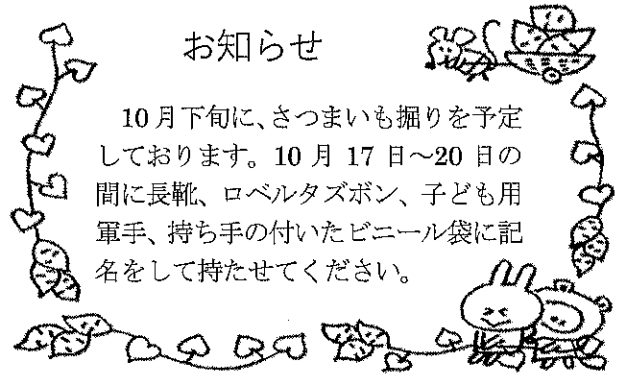 お知らせ
10月下旬に、さつまいも掘りを予定
しております。10 月 17 日～20 日の
間に長靴、ロベルタズボン、子ども用
軍手、持ち手の付いたビニール袋に記
名をして持たせてください。